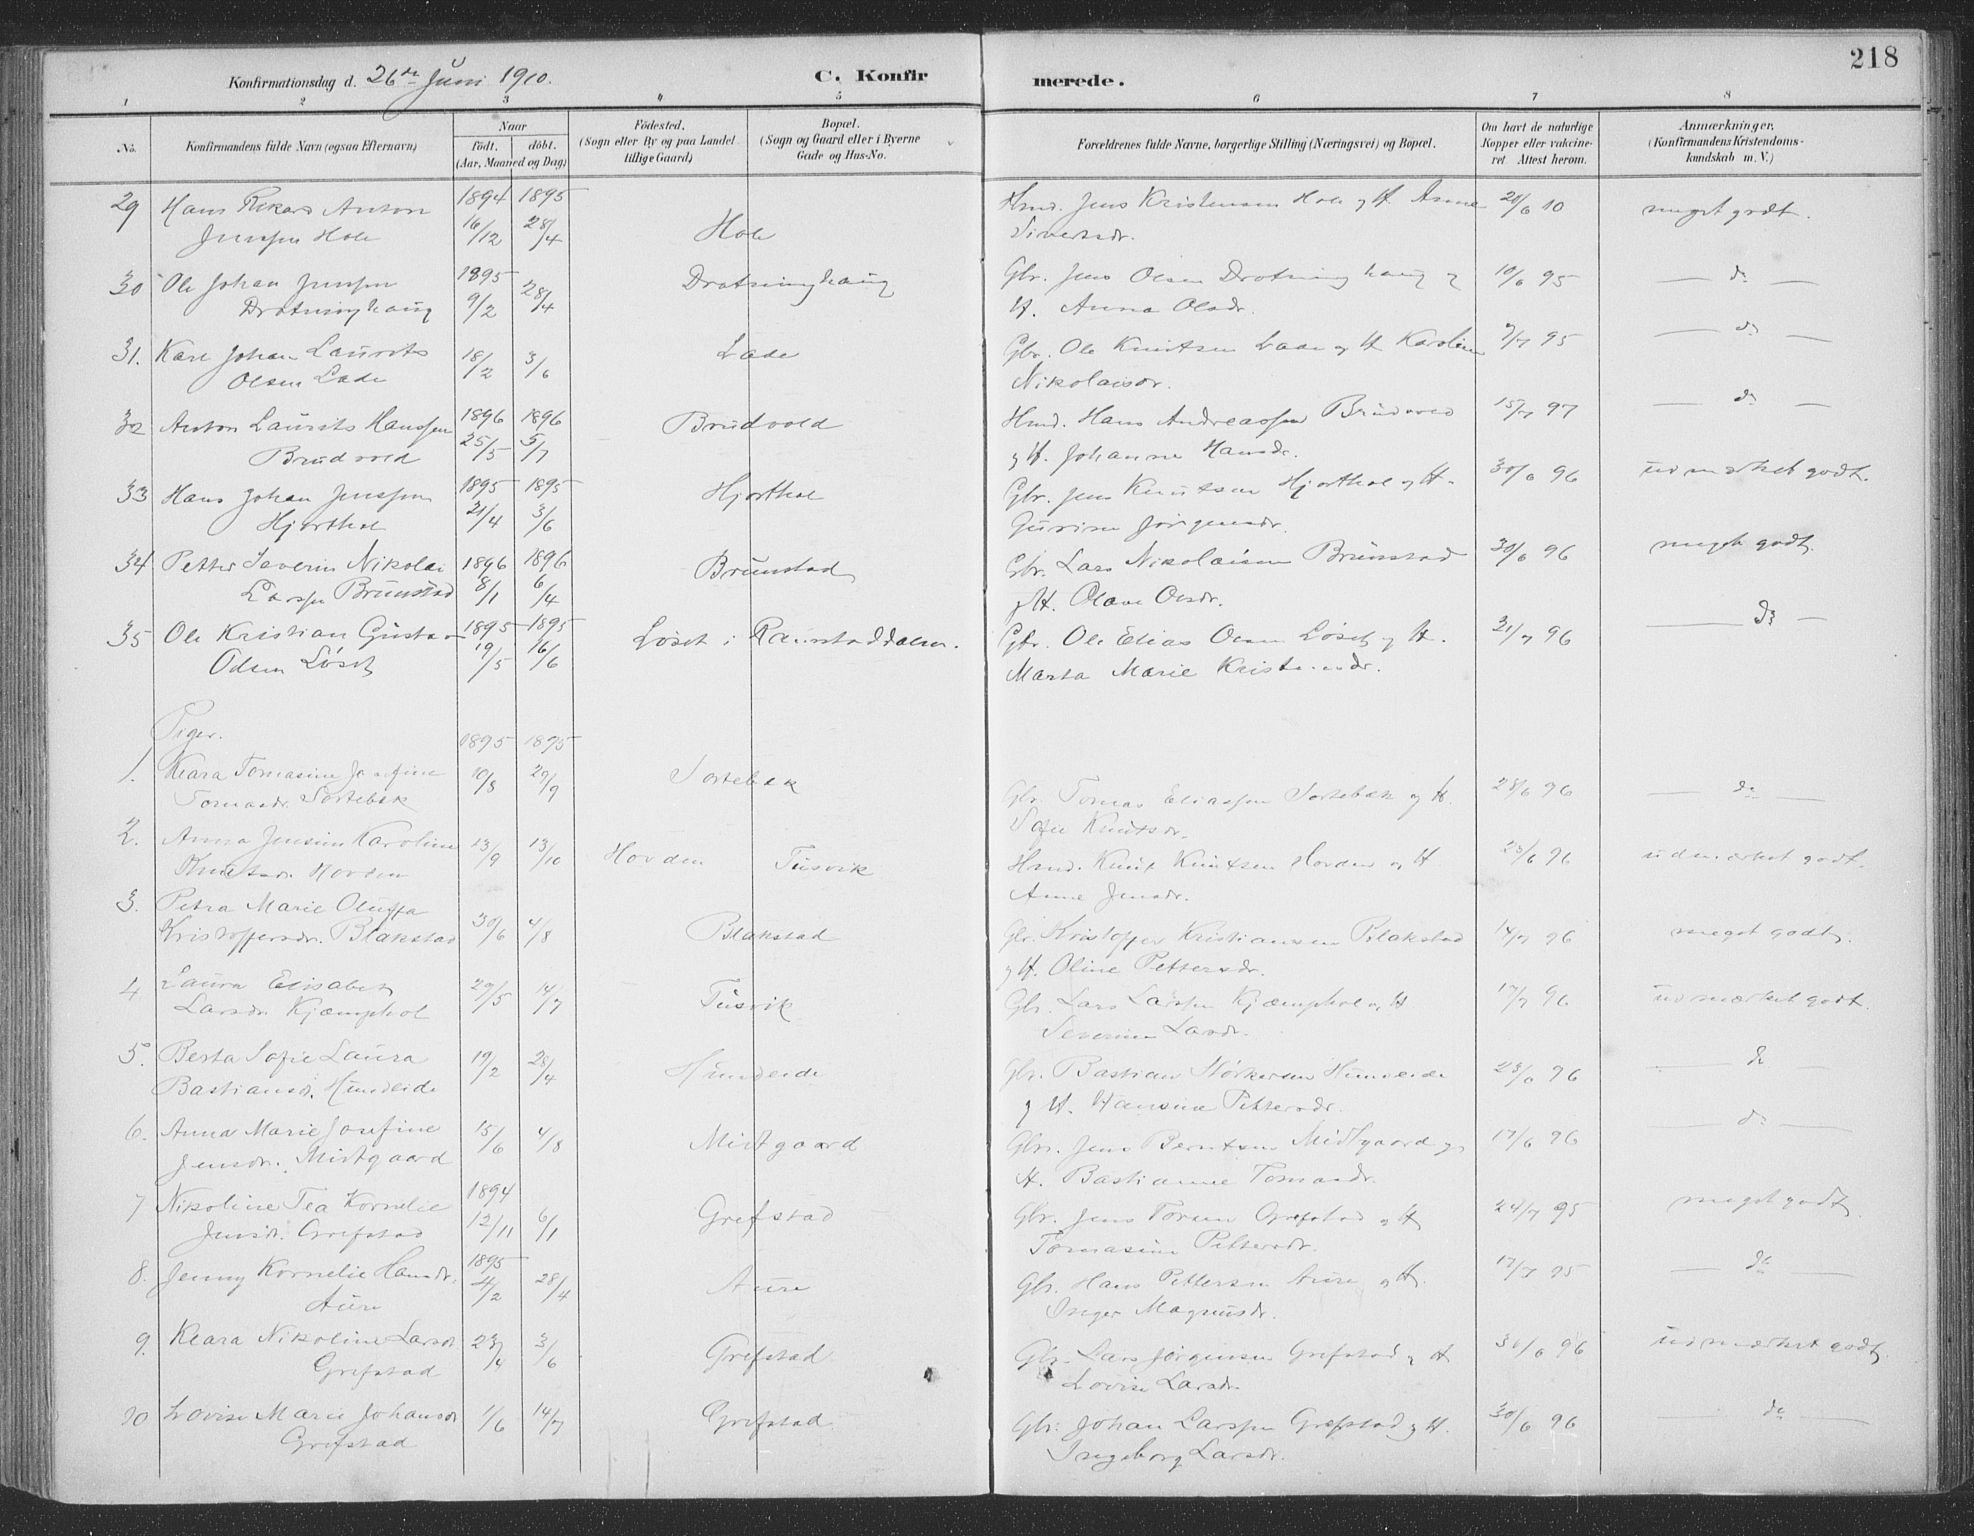 218
Konfirmationsdag d. 26de Juni 1910. C. Konfirmerede.
1 2 3 4 5 6 7 8
No. Konfirmandens fulde Navn (ogsaa Efternavn) Naar født. døbt. (Aar, Maaned og Dag) Fødested. (Sogn eller By og paa Landet tillige Gaard) Bopæl. (Sogn og Gaard eller i Byerne Gade og Hus-No. Forældrenes fulde Navne, borgerlige Stilling (Næringsvei) og Bopæl. Om havt de naturlige Kopper eller vakcineret. Attest herom. Anmærkninger. (Konfirmandens Kristendomskundskab m. V.)
29 Hans Rikard Anton 1894 1895 Hmd. Jens Kristensen Hole og H. Anne
Jenssen Hole 16/12 28/4 Hole Sivertsdr. meget godt.
30 Ole Johan Jenssen 1895 Drotninghaug Gbr. Jens Olsen Drotninghaug og 10/6 95 do
Drotninghaug 9/2 28/4 H. Anna Olsdr.
31. Karl Johan Laurits 18/2 3/6 Lade Gbr. Ole Knutsen Lade og H. Karoline 9/7 95 do
Olsen Lade Nikolaisdr.
32 Anton Laurits Hanssen 1896 1896 Brudvold Hmd. Hans Andreassen Brudvold 15/7 97 do
Brudvold 25/5 5/7 og H. Johanne Hansdr.
33 Hans Johan Jenssen 1895 1895 Hjorthol Gbr. Jens Knutsen Hjorthol og H. 30/6 96 udmærket godt.
Hjorthol 21/4 3/6 Gurine Jørgensdr.
34 Petter Severin Nikolai 1896 1896 Brunstad Gbr. Lars Nikolaisen Brunstad 30/6 96 meget godt.
Larssen Brunstad 8/1 6/4 og H. Olave Olsdr.
35 Ole Kristian Gustav 1895 1895 Løset i Ramstaddalen. Gbr. Ole Elias Olsen Løset og H. 21/7 96 do
Olsen Løset 19/5 16/6 Marta Marie Kristensdr.
Piger. 1895 1895
1. Klara Tomasine Josefine 10/8 29/9 Sortebæk Gbr. Tomas Eliassen Sortebæk og H. 28/6 96 do
Tomasdr. Sortebæk Sofie Knutsdr.
2. Anna Jensine Karoline 13/9 13/10 Hovden Tusvik Hmd. Knut Knutsen Hovden og H. 23/6 96 udmærket godt.
Knutsdr. Hovden Anne Jensdr.
3. Petra Marie Oluffa
Kristoffersdr. Blakstad 30/6 4/8 Blakstad Gbr. Kristoffer Kristiansen Blakstad 14/7 96 meget godt.
og H. Oline Pettersdr.
4 Laura Elisabet 29/5 14/7 Tusvik Gbr. Lars Larssen Kjæmphol og H. 17/7 96 udmærket godt.
Larsdr. Kjæmphol Severine Larsdr.
5. Berta Sofie Laura 19/2 28/4 Hundeide Gbr. Bastian Størkersen Hundeide 23/6 96 do
Bastiansdr. Hundeide og H. Hansine Pettersdr.
6. Anna Marie Josefine 15/6 4/8 Midtgaard Gbr. Jens Berntsen Midtgaard og 17/6 96 do
Jensdr. Midtgaard H. Bastianne Tomasdr.
7 Nikoline Tea Kornelie 1894 Grefstad Gbr. Jens Torsen Grefstad og H. 24/7 95 meget godt.
Jensdr. Grefstad 12/11 6/1 Tomasine Pettersdr.
8. Jenny Kornelie Hansdr. 1895 4/2 28/4 Aure Gbr. Hans Pettersen Aure og H. 17/7 95 do
Aure Inger Magnusdr.
9. Klara Nikoline Larsdr. 23/4 3/6 Grefstad Gbr. Lars Jørgensen Grefstad og H. 30/6 96 udmærket godt.
Grefstad Lovise Larsdr.
10 Lovise Marie Johansdr. 1/6 14/7 Grefstad. Gbr. Johan Larssen Grefstad og H. 30/6 96 do
Grefstad Ingeborg Larsdr.